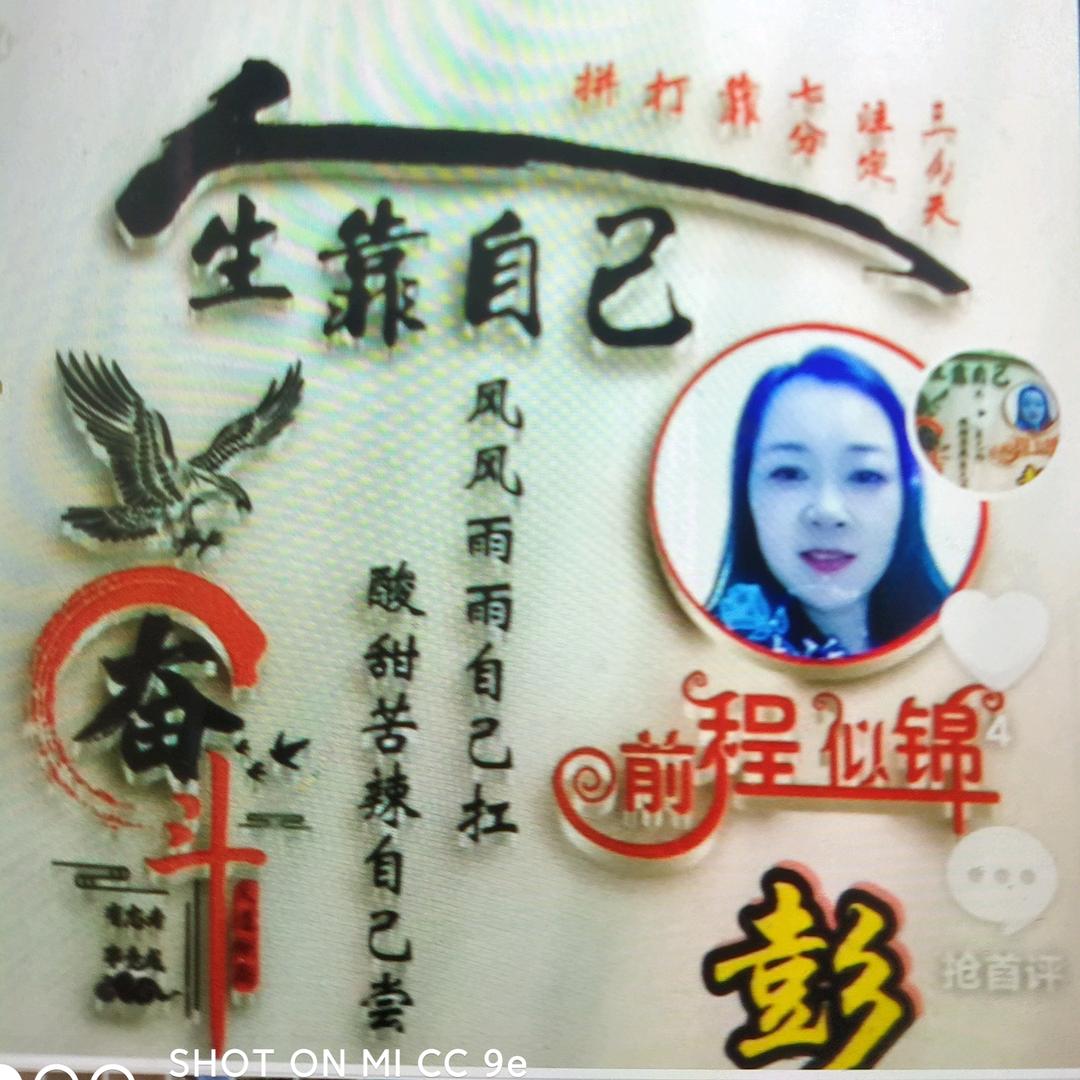 三分天注定
七分靠打拼
人生靠自己
风风雨雨自己扛
酸甜苦辣自己尝
奋斗
有志者
事竟成
前程似锦
4
彭
抢首评
SHOT ON MI CC 9e